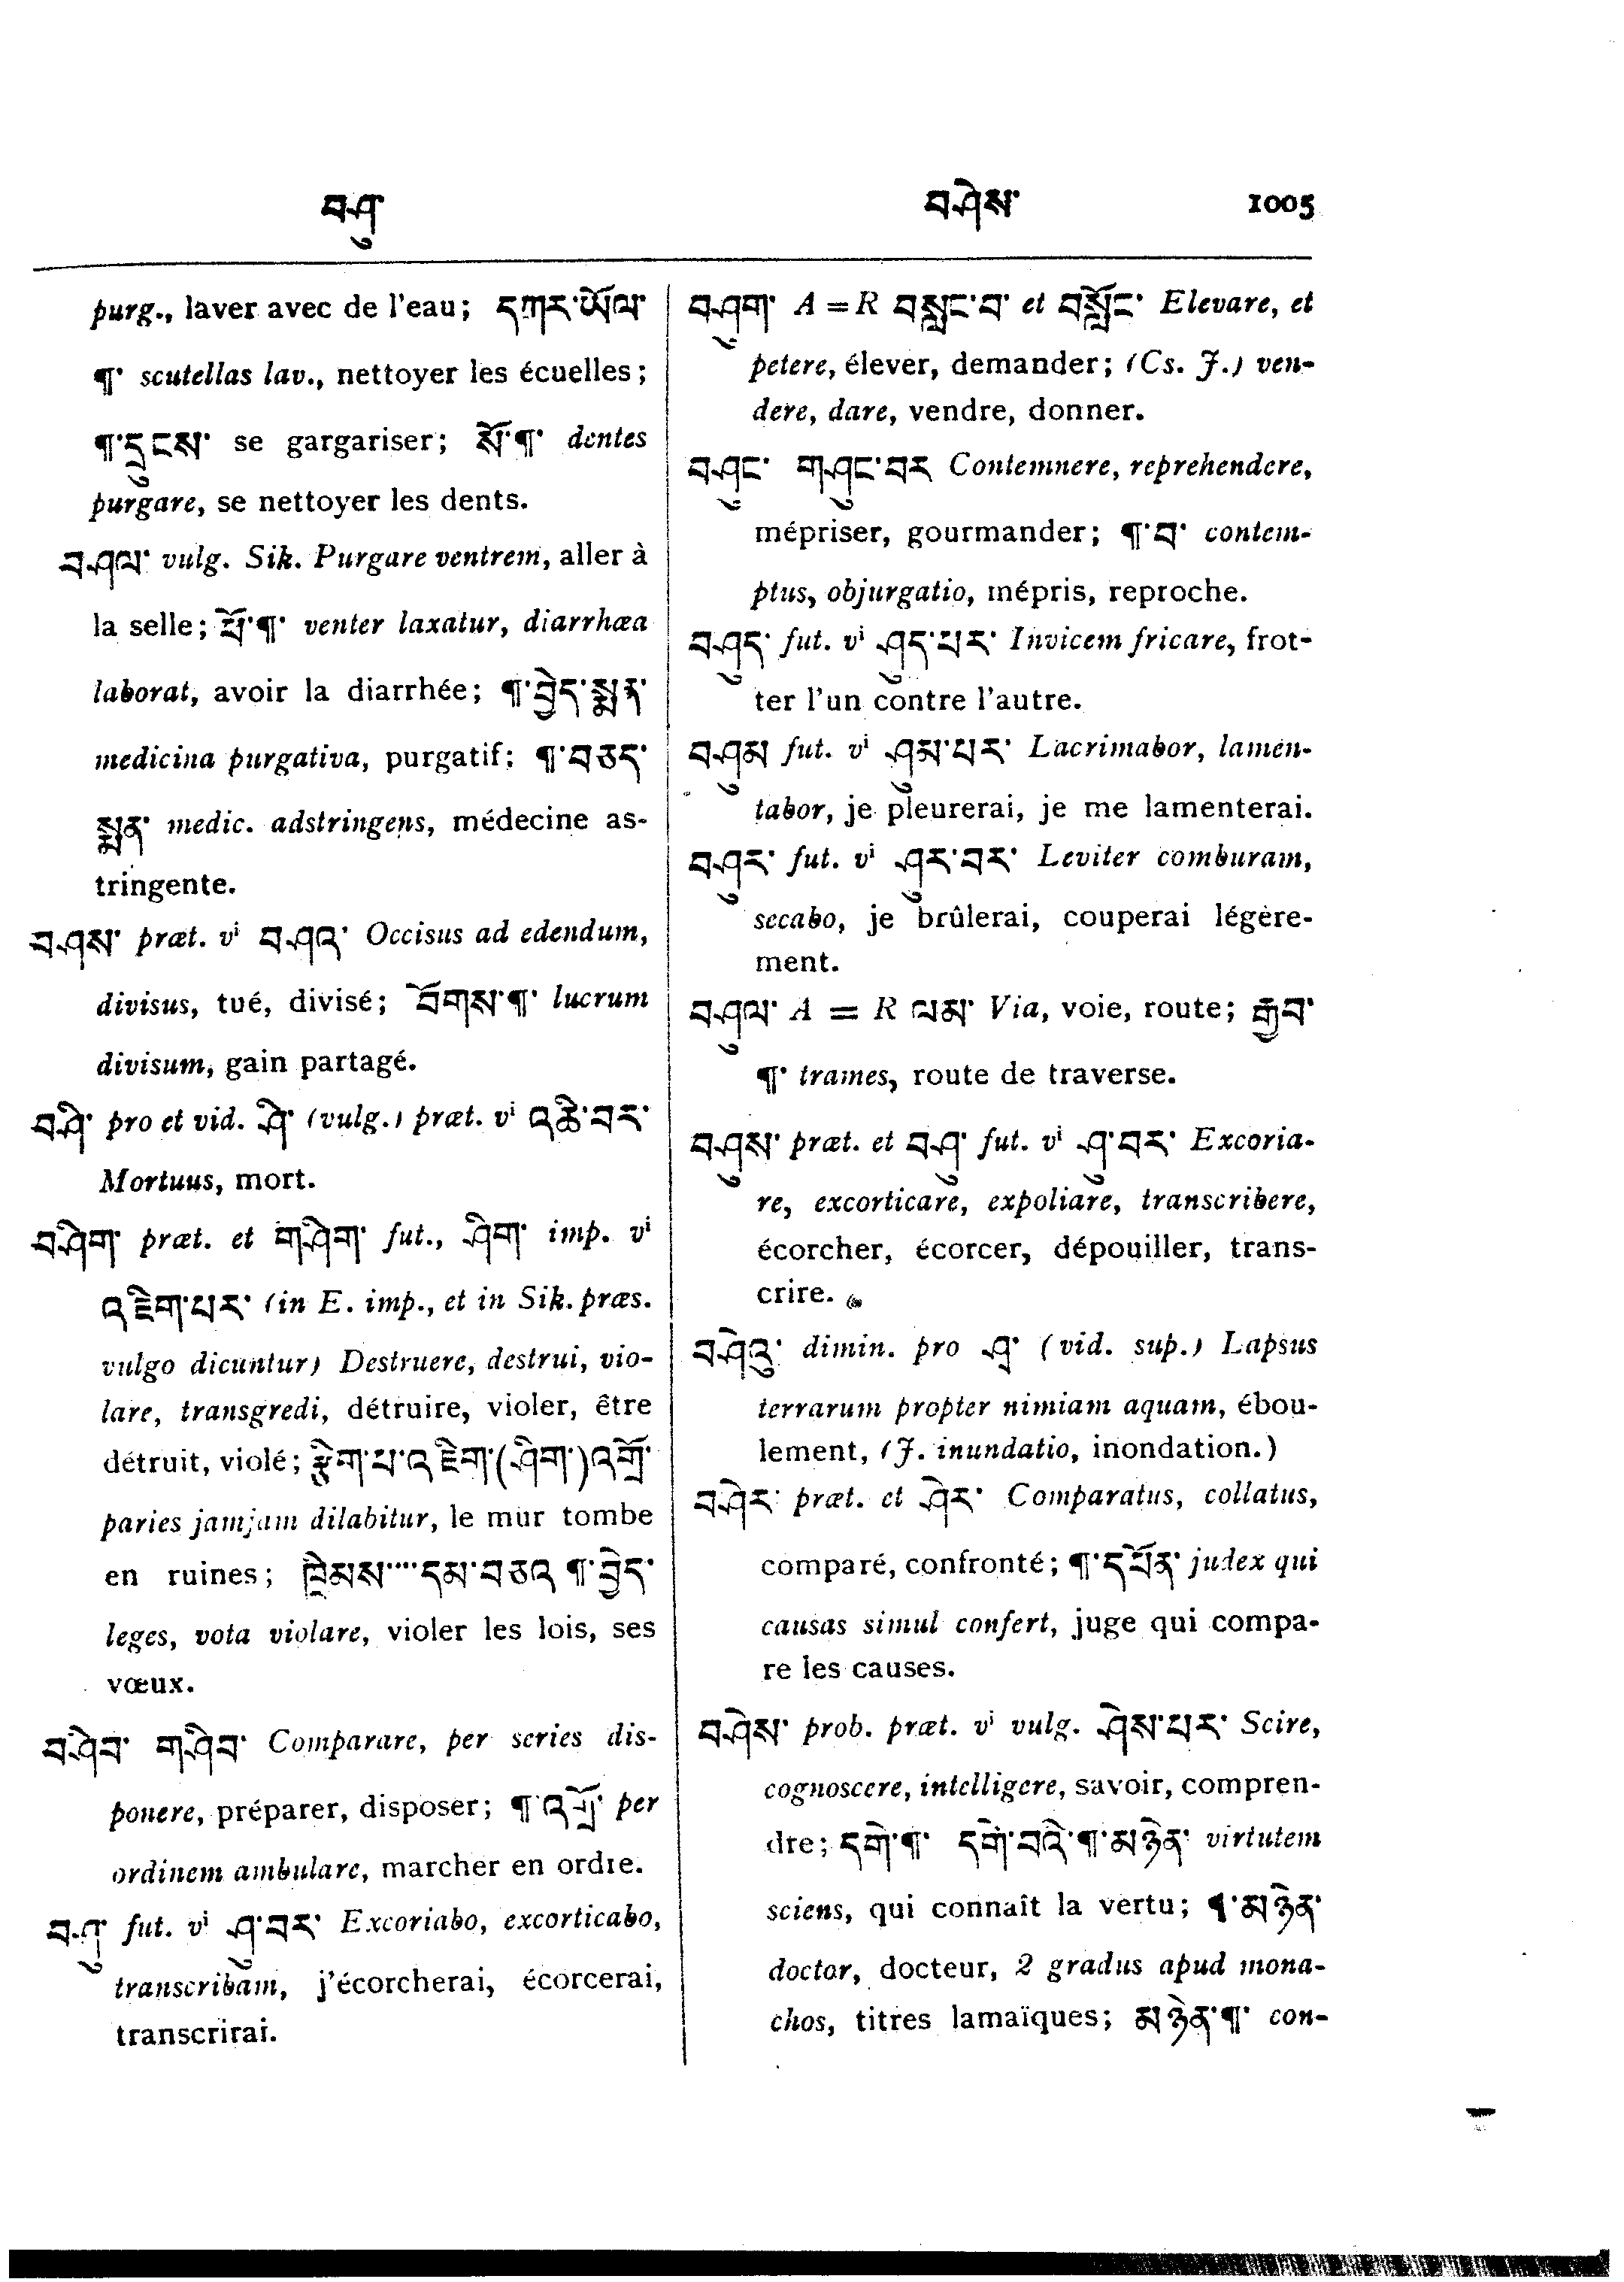 བཤུ་ བཤེས་ 1005
purg., laver avec de l'eau; དཀར་ཡོལ་
¶་ scutellas lav., nettoyer les écuelles;
¶་དྲུངས་ se gargariser; སོ་¶་ dentes
purgare, se nettoyer les dents.
བཤལ་ vulg. Sik. Purgare ventrem, aller à
la selle; ཕོ་¶་ venter laxatur, diarrhœa
laborat, avoir la diarrhée; ¶་བྱེད་སྨན་
medicina purgativa, purgatif; ¶་བཅད་
སྨན་ medic. adstringens, médecine as-
tringente.
བཤས་ præt. vⁱ བཤའ་ Occisus ad edendum,
divisus, tué, divisé; བོགས་¶་ lucrum
divisum, gain partagé.
བཤི་ pro et vid. ཤི་ (vulg.) præt. vⁱ འཆི་བར་
Mortuus, mort.
བཤིག་ præt. et གཤིག་ fut., ཤིག་ imp. vⁱ
འཇིག་པར་ (in E. imp., et in Sik. præs.
vulgo dicuntur) Destruere, destrui, vio-
lare, transgredi, détruire, violer, être
détruit, violé; རྩིག་པ་འཇིག་(ཤིག་)འགྲོ་
paries jamjam dilabitur, le mur tombe
en ruines; ཁྲིམས་···དམ་བཅའ ¶་བྱེད་
leges, vota violare, violer les lois, ses
vœux.
བཤིབ་ གཤིབ་ Comparare, per series dis-
ponere, préparer, disposer; ¶་འགྲོ་ per
ordinem ambulare, marcher en ordre.
བཤུ་ fut. vⁱ ཤུ་བར་ Excoriabo, excorticabo,
transcribam, j'écorcherai, écorcerai,
transcrirai.
བཤུག་ A = R བསླང་བ་ et བསློང་ Elevare, et
petere, élever, demander; (Cs. J.) ven-
dere, dare, vendre, donner.
བཤུང་ གཤུང་བར Contemnere, reprehendere,
mépriser, gourmander; ¶་བ་ contem-
ptus, objurgatio, mépris, reproche.
བཤུད་ fut. vⁱ ཤུད་པར་ Invicem fricare, frot-
ter l'un contre l'autre.
བཤུམ fut. vⁱ ཤུམ་པར་ Lacrimabor, lamen-
tabor, je pleurerai, je me lamenterai.
བཤུར་ fut. vⁱ ཤུར་བར་ Leviter comburam,
secabo, je brûlerai, couperai légère-
ment.
བཤུལ་ A = R ལམ་ Via, voie, route; རྒྱབ་
¶་ trames, route de traverse.
བཤུས་ præt. et བཤུ་ fut. vⁱ ཤུ་བར་ Excoria-
re, excorticare, expoliare, transcribere,
écorcher, écorcer, dépouiller, trans-
crire.
བཤེའུ་ dimin. pro ཤྭ་ (vid. sup.) Lapsus
terrarum propter nimiam aquam, ébou-
lement, (J. inundatio, inondation.)
བཤེར་ præt. et ཤེར་ Comparatus, collatus,
comparé, confronté; ¶་དཔོན་ judex qui
causas simul confert, juge qui compa-
re les causes.
བཤེས་ prob. præt. vⁱ vulg. ཤེས་པར་ Scire,
cognoscere, intelligere, savoir, compren-
dre; དགེ་¶་ དགེ་བའི་¶་མཉེན་ virtutem
sciens, qui connaît la vertu; ¶་མཉེན་
doctor, docteur, 2 gradus apud mona-
chos, titres lamaïques; མཉེན་¶་ con-